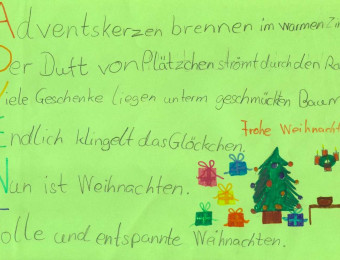 Adventskerzen brennen im warmen Zim
Der Duft von Plätzchen strömt durch den Ra
Viele Geschenke liegen unterm geschmückten Baum
Endlich klingelt das Glöckchen.
Frohe Weihnacht
Nun ist Weihnachten.
Tolle und entspannte Weihnachten.